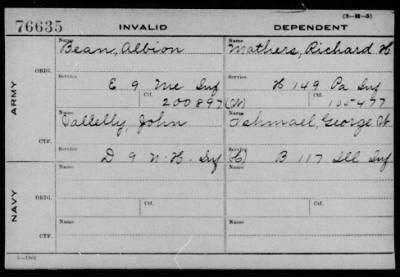 (3-111-5)
76635 INVALID DEPENDENT
ARMY
NAVY
ORIG.
CTF.
ORIG.
CTF.
Name Name
Bean, Albion Mathers, Richard H
Service Service
E 9 Me Inf H 149 Pa Inf
Ctf. Ctf.
200897 (W) 105477
Name Name
John George W.
Service Service
D 9 N.H. Inf (H) B 117 Ill Inf
Name Name
Service Ctf. Service Ctf.
Name Name
Service Service